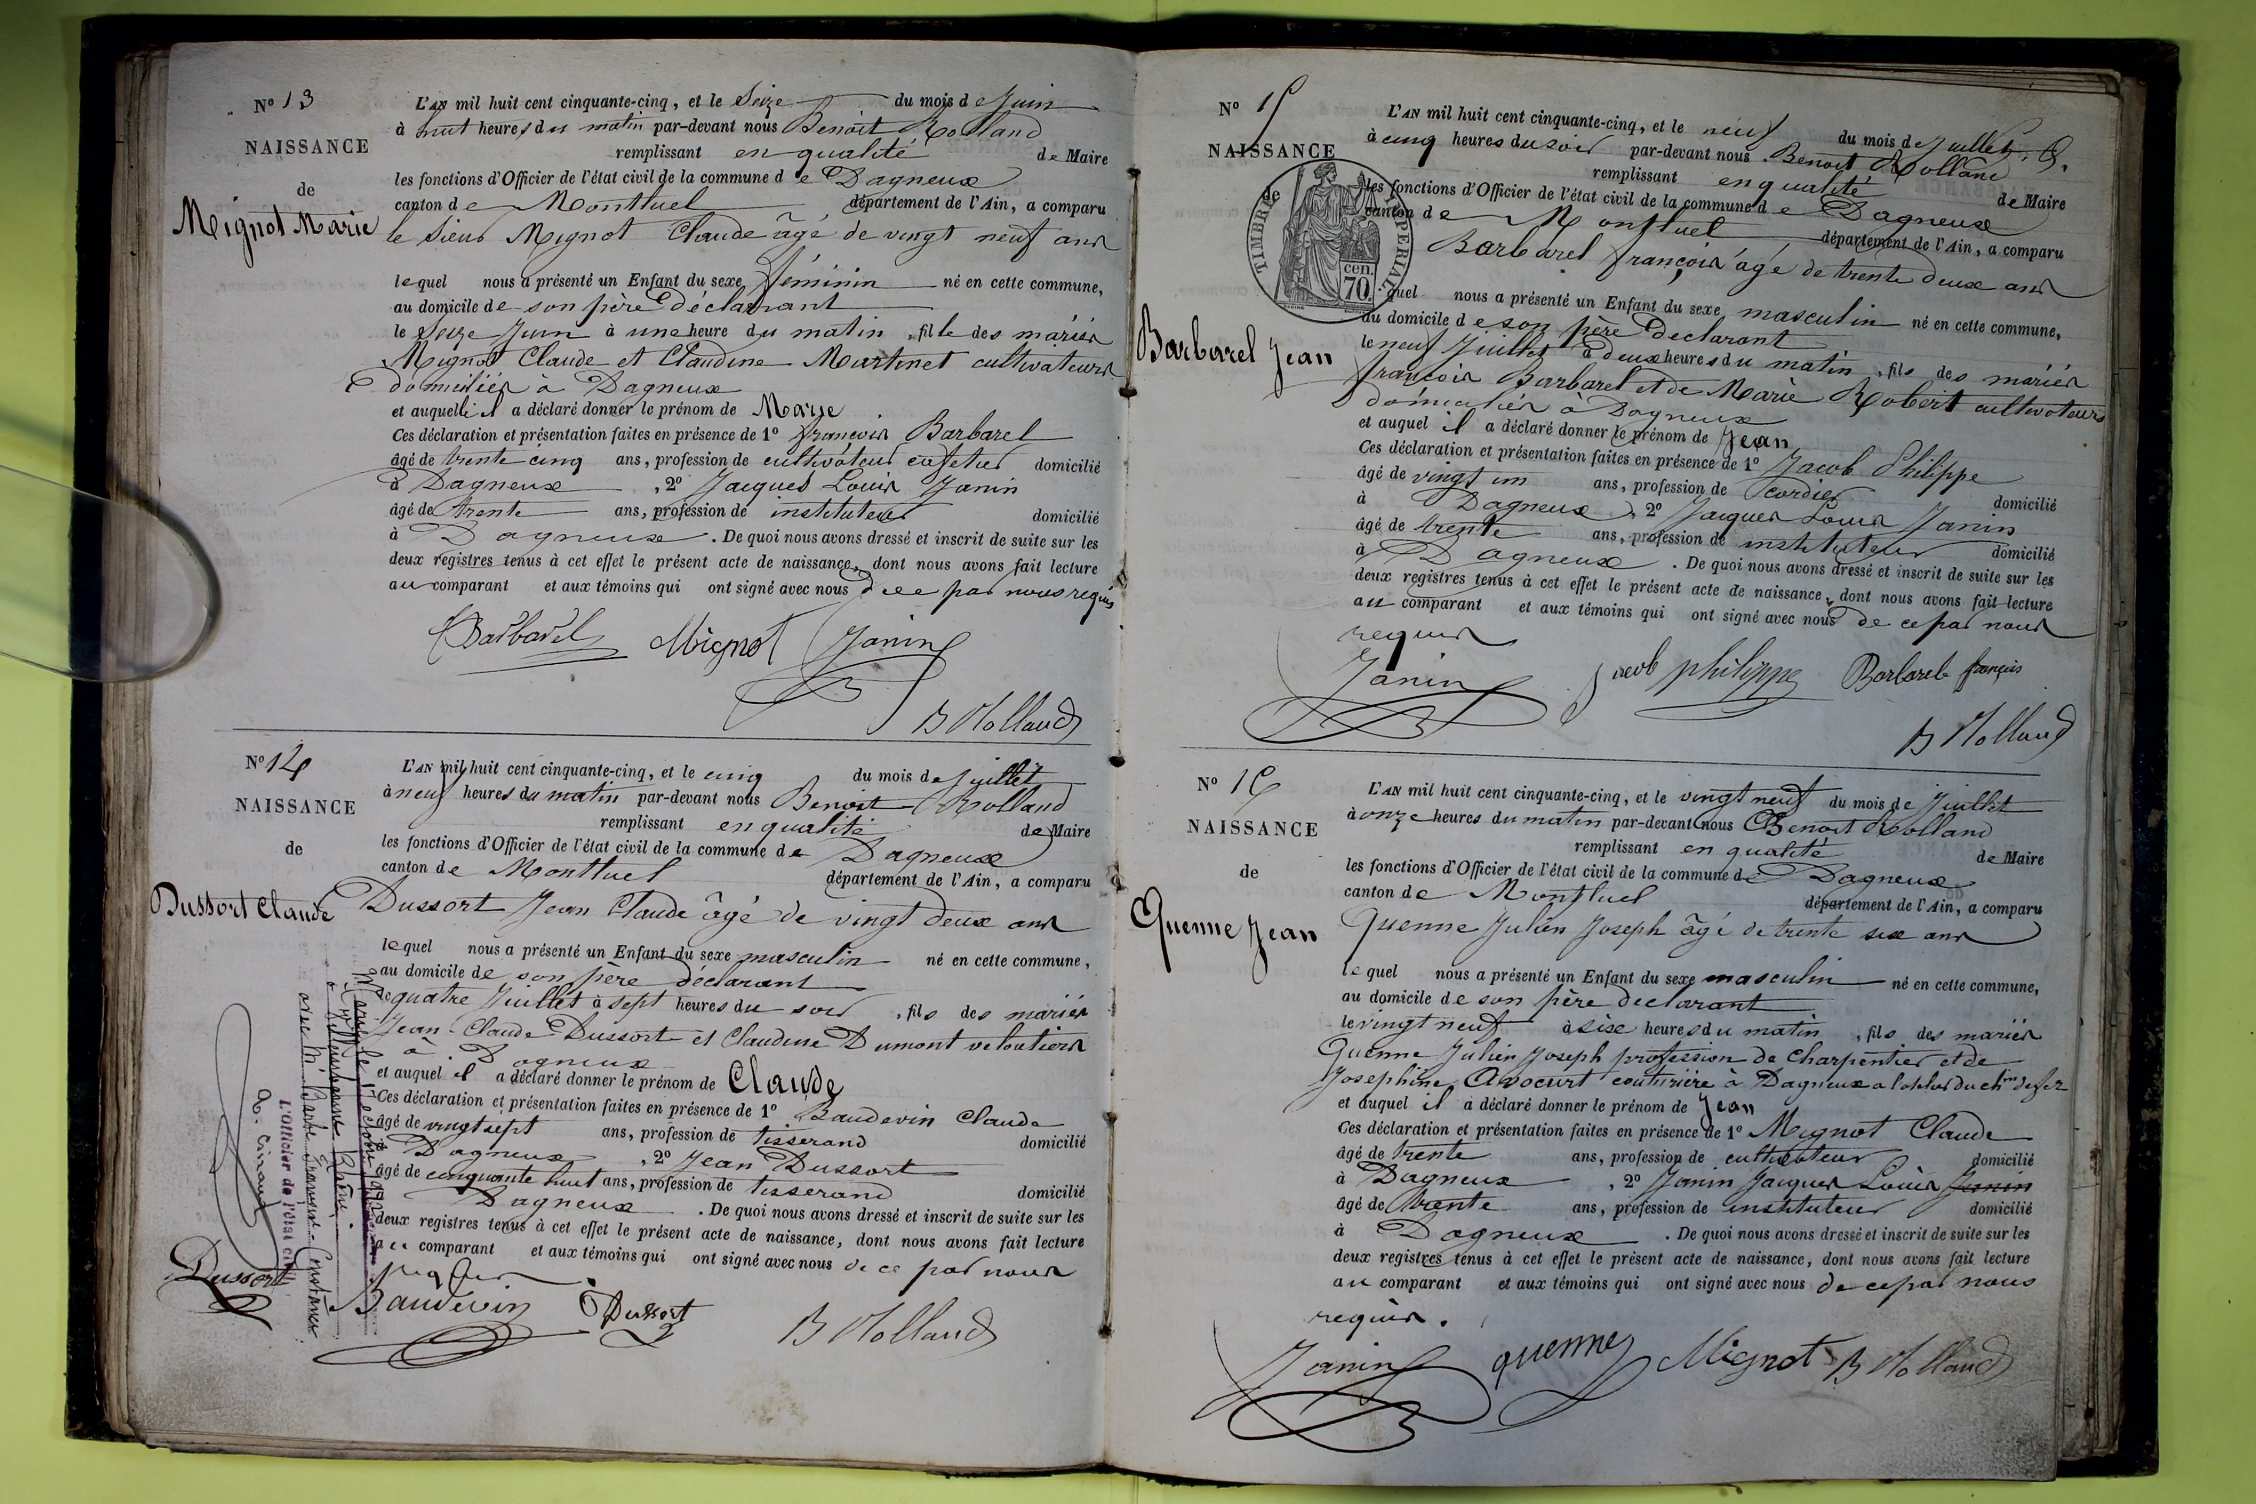 N° 13
NAISSANCE
de
Mignot Marie
L'AN mil huit cent cinquante-cinq, et le Seize du mois de Juin
à huit heures du matin par-devant nous Benoit Rolland
remplissant en qualité de Maire
les fonctions d'Officier de l'état civil de la commune de Dagneux
canton de Montluel département de l'Ain, a comparu
le Sieur Mignot Claude âgé de vingt neuf ans
lequel nous a présenté un Enfant du sexe féminin né en cette commune,
au domicile de son père déclarant
le Seize Juin à une heure du matin, fille des mariés
Mignot Claude et Claudine Martinet cultivateurs
domiciliés a Dagneux
et auquelle il a déclaré donner le prénom de Marie
Ces déclaration et présentation faites en présence de 1° françois Barbarel
âgé de trente cinq ans, profession de cultivateur cafetier domicilié
à Dagneux, 2° Jacques Louis Janin
âgé de trente ans, profession de instituteur domicilié
à Dagneux. De quoi nous avons dressé et inscrit de suite sur les
deux registres tenus à cet effet le présent acte de naissance, dont nous avons fait lecture
au comparant et aux témoins qui ont signé avec nous de ce par nous requis
Barbarel Mignot Janin
B Rolland
N° 14
NAISSANCE
de
Dussort Claude
L'AN mil huit cent cinquante-cinq, et le cinq du mois de Juillet
à neuf heures du matin par-devant nous Benoit Rolland
remplissant en qualité de Maire
les fonctions d'Officier de l'état civil de la commune de Dagneux
canton de Montluel département de l'Ain, a comparu
Dussort Jean Claude âgé de vingt deux ans
lequel nous a présenté un Enfant du sexe masculin né en cette commune,
au domicile de son père déclarant
le quatre Juillet à sept heures du soir, fils des mariés
Jean-Claude Dussort et Claudine Dumont veloutiers
à Dagneux
et auquel il a déclaré donner le prénom de Claude
Ces déclaration et présentation faites en présence de 1° Baudevin Claude
âgé de vingt sept ans, profession de tisserand domicilié
à Dagneux, 2° Jean Dussort
âgé de cinquante huit ans, profession de tisserand domicilié
Dagneux. De quoi nous avons dressé et inscrit de suite sur les
deux registres tenus à cet effet le présent acte de naissance, dont nous avons fait lecture
au comparant et aux témoins qui ont signé avec nous de ce par nous
requis
Marié le
à Villeurbanne Rhône.
avec Mlle Barbe Françoise-Constance
L'Officier de l'État civil
Dussort Baudevin Dussort B Rolland
N° 15
NAISSANCE
de
TIMBRE IMPERIAL
cen.
70.
Barbarel Jean
L'AN mil huit cent cinquante-cinq, et le neuf du mois de Juillet
à cinq heures du soir par-devant nous Benoit Rolland
remplissant en qualité de Maire
les fonctions d'Officier de l'état civil de la commune de Dagneux
canton de Montluel département de l'Ain, a comparu
Barbarel françois âgé de trente deux ans
quel nous a présenté un Enfant du sexe masculin né en cette commune,
au domicile de son père déclarant
le neuf Juillet à deux heures du matin, fils des mariés
françois Barbarel et de Marie Robert cultivateurs
domiciliés à Dagneux
et auquel il a déclaré donner le prénom de Jean
Ces déclaration et présentation faites en présence de 1° Jacob Philippe
âgé de vingt un ans, profession de cordier domicilié
à Dagneux, 2° Jacques Louis Janin
âgé de trente ans, profession de instituteur domicilié
à Dagneux. De quoi nous avons dressé et inscrit de suite sur les
deux registres tenus à cet effet le présent acte de naissance, dont nous avons fait lecture
au comparant et aux témoins qui ont signé avec nous de ce par nous
requis
Janin jacob philippe Barbarel françois
B Rolland
N° 16
NAISSANCE
de
Quenne Jean
L'AN mil huit cent cinquante-cinq, et le vingt neuf du mois de Juillet
à onze heures du matin par-devant nous Benoit Rolland
remplissant en qualité de Maire
les fonctions d'Officier de l'état civil de la commune de Dagneux
canton de Montluel département de l'Ain, a comparu
Quenne Julien Joseph âgé de trente six ans
lequel nous a présenté un Enfant du sexe masculin né en cette commune,
au domicile de son père déclarant
le vingt neuf à six heures du matin, fils des mariés
Quenne Julien Joseph profession de charpentier et de
Josephine Avocurt couturière à Dagneux du chin de fer
et auquel il a déclaré donner le prénom de Jean
Ces déclaration et présentation faites en présence de 1° Mignot Claude
âgé de trente ans, profession de cultivateur domicilié
à Dagneux, 2° Janin Jacques Louis Janin
âgé de trente ans, profession de instituteur domicilié
à Dagneux. De quoi nous avons dressé et inscrit de suite sur les
deux registres tenus à cet effet le présent acte de naissance, dont nous avons fait lecture
au comparant et aux témoins qui ont signé avec nous de ce par nous
requis.
Janin quenne Mignot B Rolland